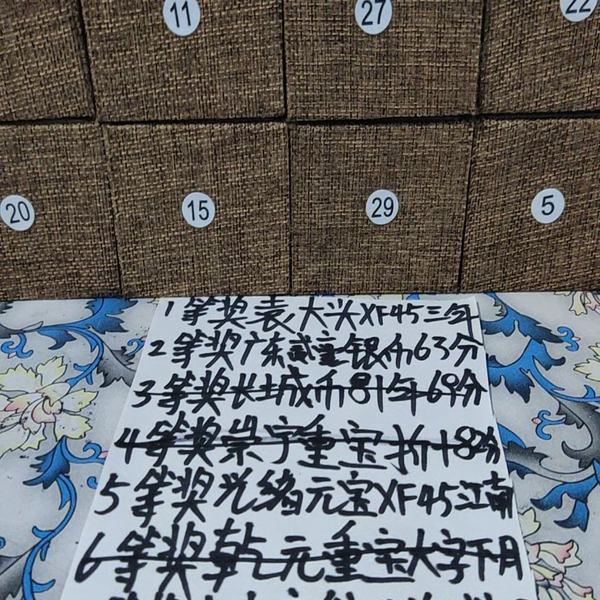 11 27 22
20 15 29 5
1等奖袁大头XF45三年
2等奖广东咸宝银币63分
3等奖长城币81年69分
4等奖崇宁重宝折十82分
5等奖光绪元宝XF45江南
6等奖乾元重宝大字下月